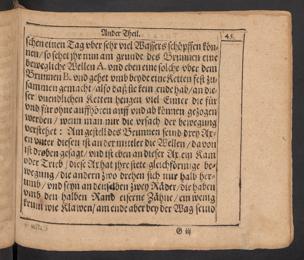 Ander Theil. 45.
schen einen Tag vber sehr viel Wassers schöpffen kön-
nen/ so sehet jhr nun am grunde des Brunnen eine
bewegliche Wellen A. vnd eben eine solche vber dem
Brunnen B. vnd gehet vmb beyde eine Ketten fest zu-
sammen gemacht/ also daß sie kein ende hab/ an die-
ser vnendlichen Ketten hengen viel Eimer die für
vnd für ohne auffhören auff vnd ab können gezogen
werden/ wenn man nur die vrsach der bewegung
verstehet: Am gestell des Brunnen seind drey Ar-
en vnter diesen ist an der mittler die Wellen/ da von
ist droben gesagt/ vnd ist eben an dieser Ar ein Kam
oder Trieb/ diese Ar hat jhre stete gleichförmige be-
wegung/ die andern zwo drehen sich nur halb her-
umb/ vnd seyn an denselben zwey Räder/ die haben
vmb den halben Rand eiserne Zähne/ ein wenig
krum wie Klawen/ am ende aber bey der Wag seind
G iij